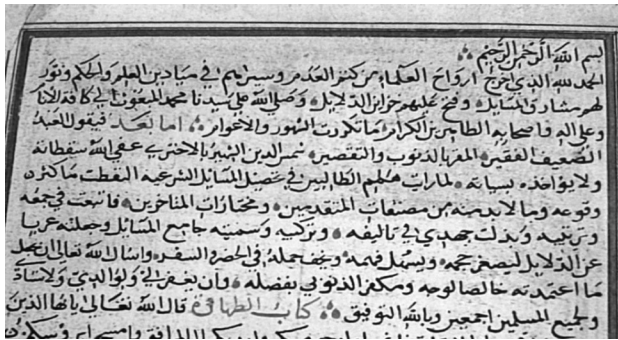 بسم الله الرحمن الرحيم
الحمد لله الذي اخرج ارواح العلماء من كتم العدم وسيرهم في ميادين العلم والحكم ونور
لهم مشارق المسايل وفتح عليهم خزاين الدلايل وصلي الله علي سيدنا محمد المبعوث الي كافة الانام
وعلي اله واصحابه الطاهرين الكرام ما تكررت الشهور والاعوام اما بعد فيقول العبد
الضعيف الفقير المقر بالذنوب والتقصير شمس الدين الشهير بالاختري عفي الله سقطاته
ولا يواخذه بسياته لما رايت الطالبين في تحصيل المسايل الشرعيه التقطت ما كثر
وقوعه وما لا بد منه من مصنفات المتقدمين ومختارات المتاخرين فاتبعت في جمعه
وترتيبه وبذلت جهدي في تاليفه وتركيبه وسميته جامع المسايل وجعلته عريا
عن الدلايل ليصغر حجمه ويسهل فهمه ويخف حمله في الحضر والسفر واسال الله تعالي ان يجعل
ما اعتمدته خالصا لوجهه ومكفر الذنوبي بفضله وان يغفر لي ولوالدي ولاستاذي
ولجميع المسلمين اجمعين وبالله التوفيق كتاب الطهاقة قال الله تعالي ياايها الذين